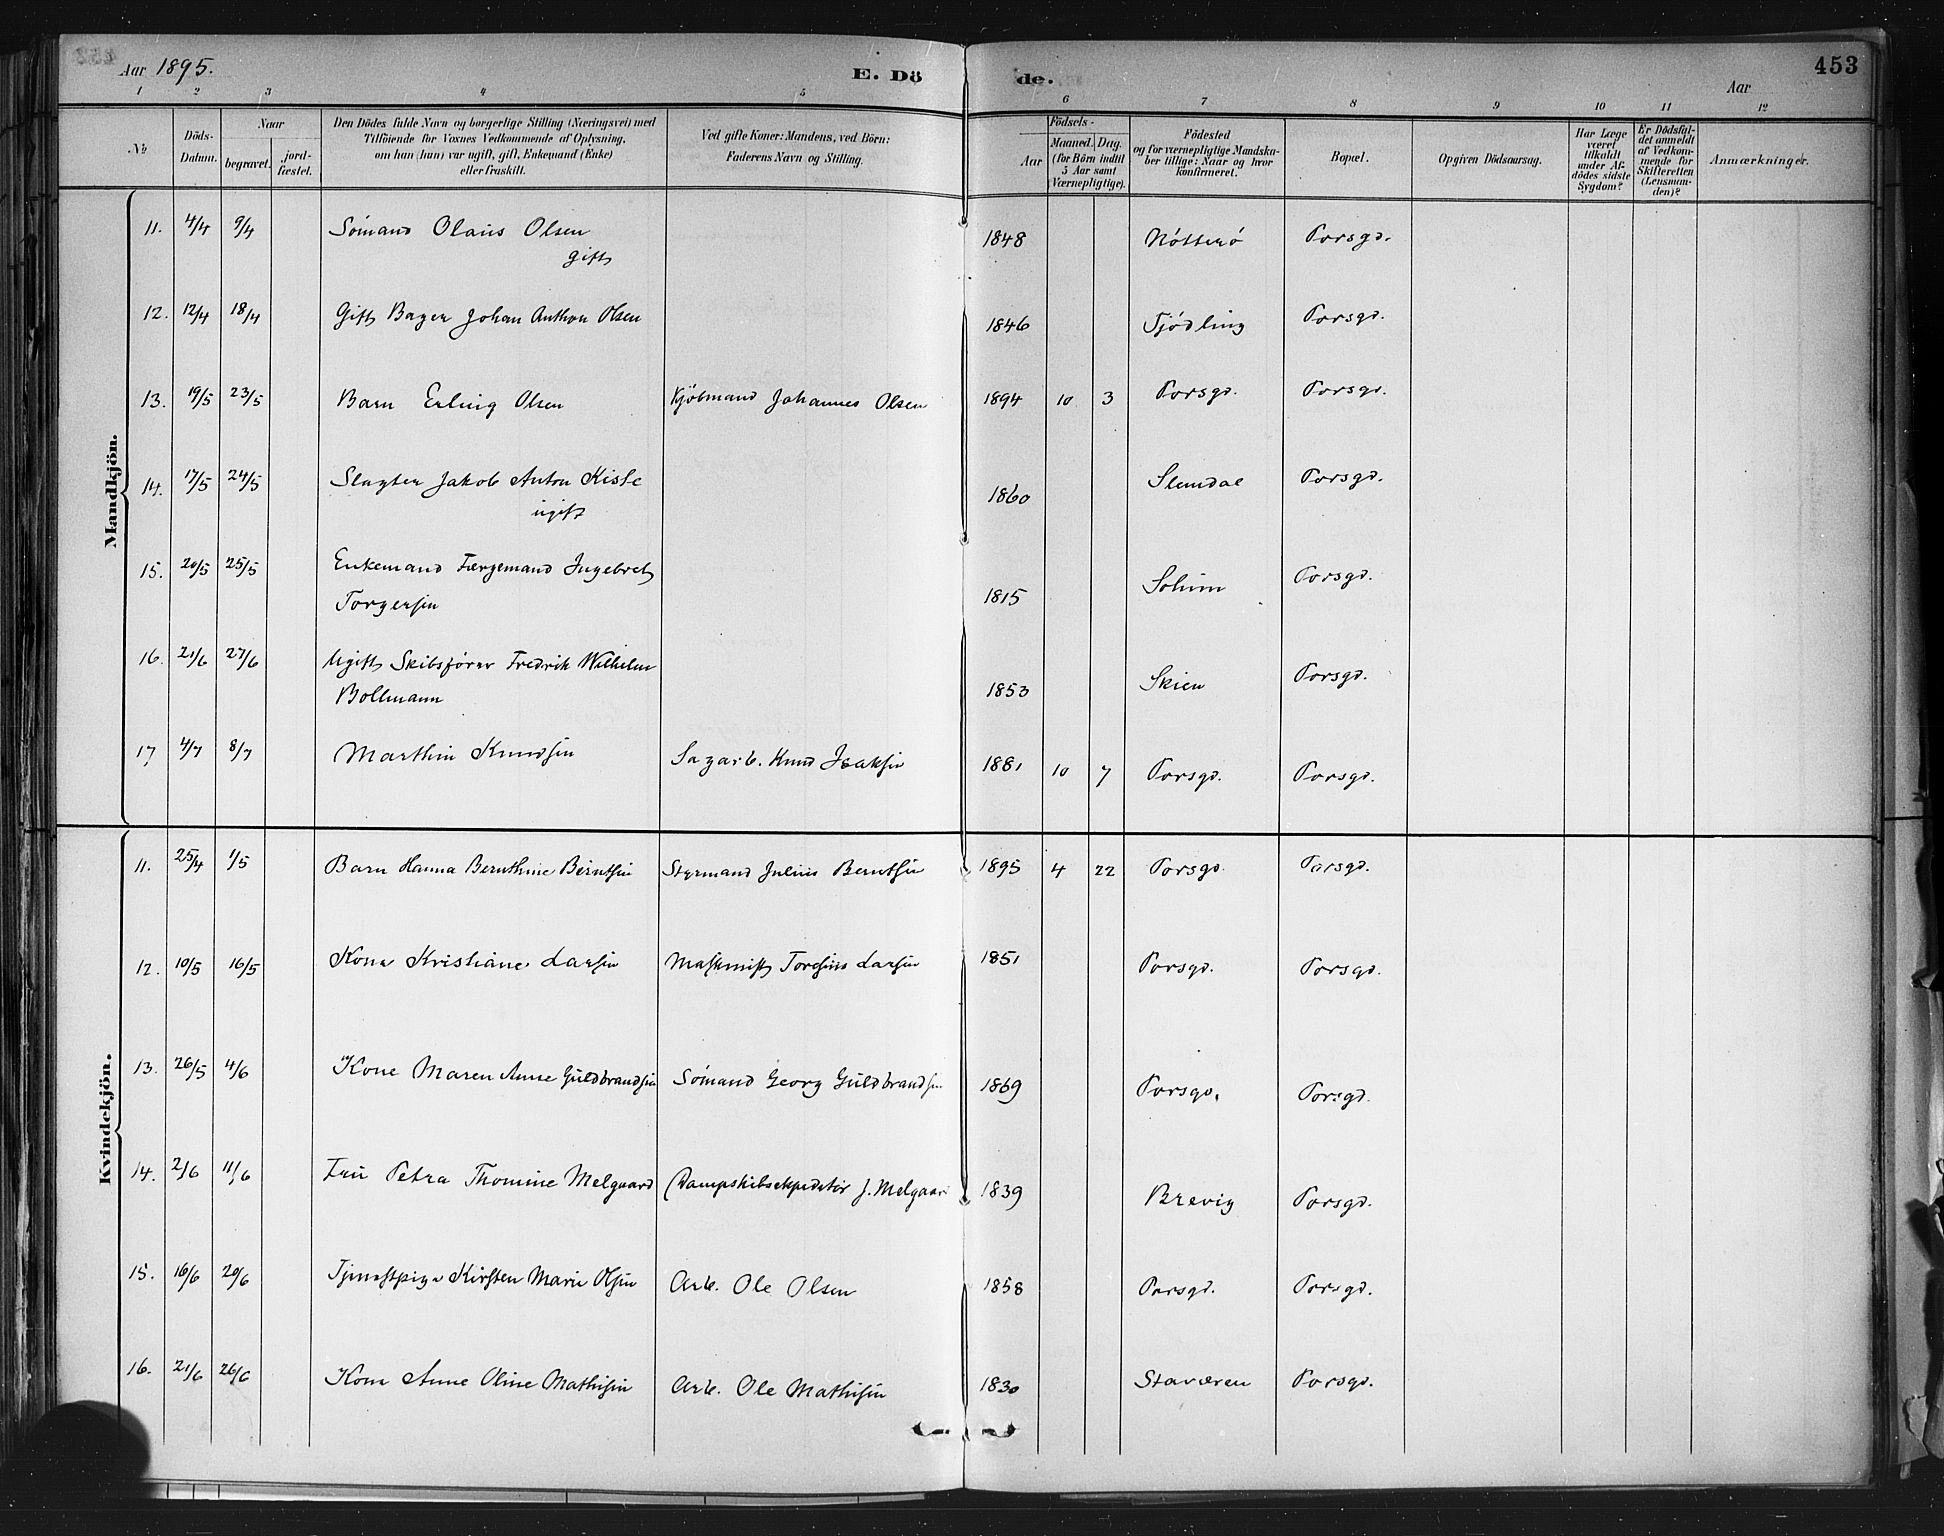 Aar 1895.
E. Dö de.
Aar
453
1 2 3 4 5 6 7 8 9 10 11 12
№
Döds-Datum.
Naar
begravet.
jord-fæstet.
Den Dödes fulde Navn og borgerlige Stilling (Næringsvei) med
Tilföiende for Voxnes Vedkommende af Oplysning,
om han (hun) var ugift, gift, Enkemand (Enke)
eller fraskilt.
Ved gifte Koner: Mandens, ved Börn:
Faderens Navn og Stilling.
Födsels-
Aar
Maaned. Dag.
(for Börn indtil
5 Aar samt
Værnepligtige).
Födested
og for værnepligtige Mandska-
ber tillige: Naar og hvor
konfirmeret.
Bopæl.
Opgiven Dödsaarsag.
Har Læge
været
tilkaldt
under Af-
dödes sidste
Sygdom?
Er Dödsfal-
det anmeldt
af Vedkom-
mende for
Skifteretten
(Lensman-
den)?
Anmærkninger.
Mandkjön.
11. 4/4 9/4 Sömand Olaus Olsen 1848 Nötterö Porsgd.
gift
12. 12/4 18/4 Gift Bager Johan Anthon Olsen 1846 Tjödling Porsgd.
13. 19/5 23/5 Barn Erling Olsen Kjöbmand Johannes Olsen 1894 10 3 Porsgd. Porsgd.
14. 17/5 24/5 Slagter Jakob Anton Kisle 1860 Slemdal Porsgd.
ugift
15. 20/5 25/5 Enkemand Færgemand Ingebret 1815 Solum Porsgd.
Torgersen
16. 21/6 27/6 Ugift Skibsförer Fredrik Wilhelm 1853 Skien Porsgd.
Bollmann
17 4/7 8/7 Marthin Knudsen Sagarb. Knud Isaksen 1881 10 7 Porsgd. Porsgd.
Kvindekjön.
11. 25/4 1/5 Barn Hanna Bernthine Berntsen Styrmand Julius Berntsen 1895 4 22 Porsgd. Porsgd.
12. 10/5 16/5 Kone Kristiane Larsen Maskinist Larsen 1851 Porsgd. Porsgd.
13. 26/5 4/6 Kone Maren Anne Guldbrandsen Sömand Georg Guldbrandsen 1869 Porsgd. Porsgd.
14. 2/6 11/6 Fru Petra Thomine Melgaard Dampskibsekspeditör J. Melgaar 1839 Brevig Porsgd.
15. 16/6 20/6 Tjenestpige Kirsten Marie Olsen Arb. Ole Olsen 1858 Porsgd. Porsgd.
16. 21/6 26/6 Kone Anne Oline Mathisen Arb. Ole Mathisen 1830 Staværen Porsgd.